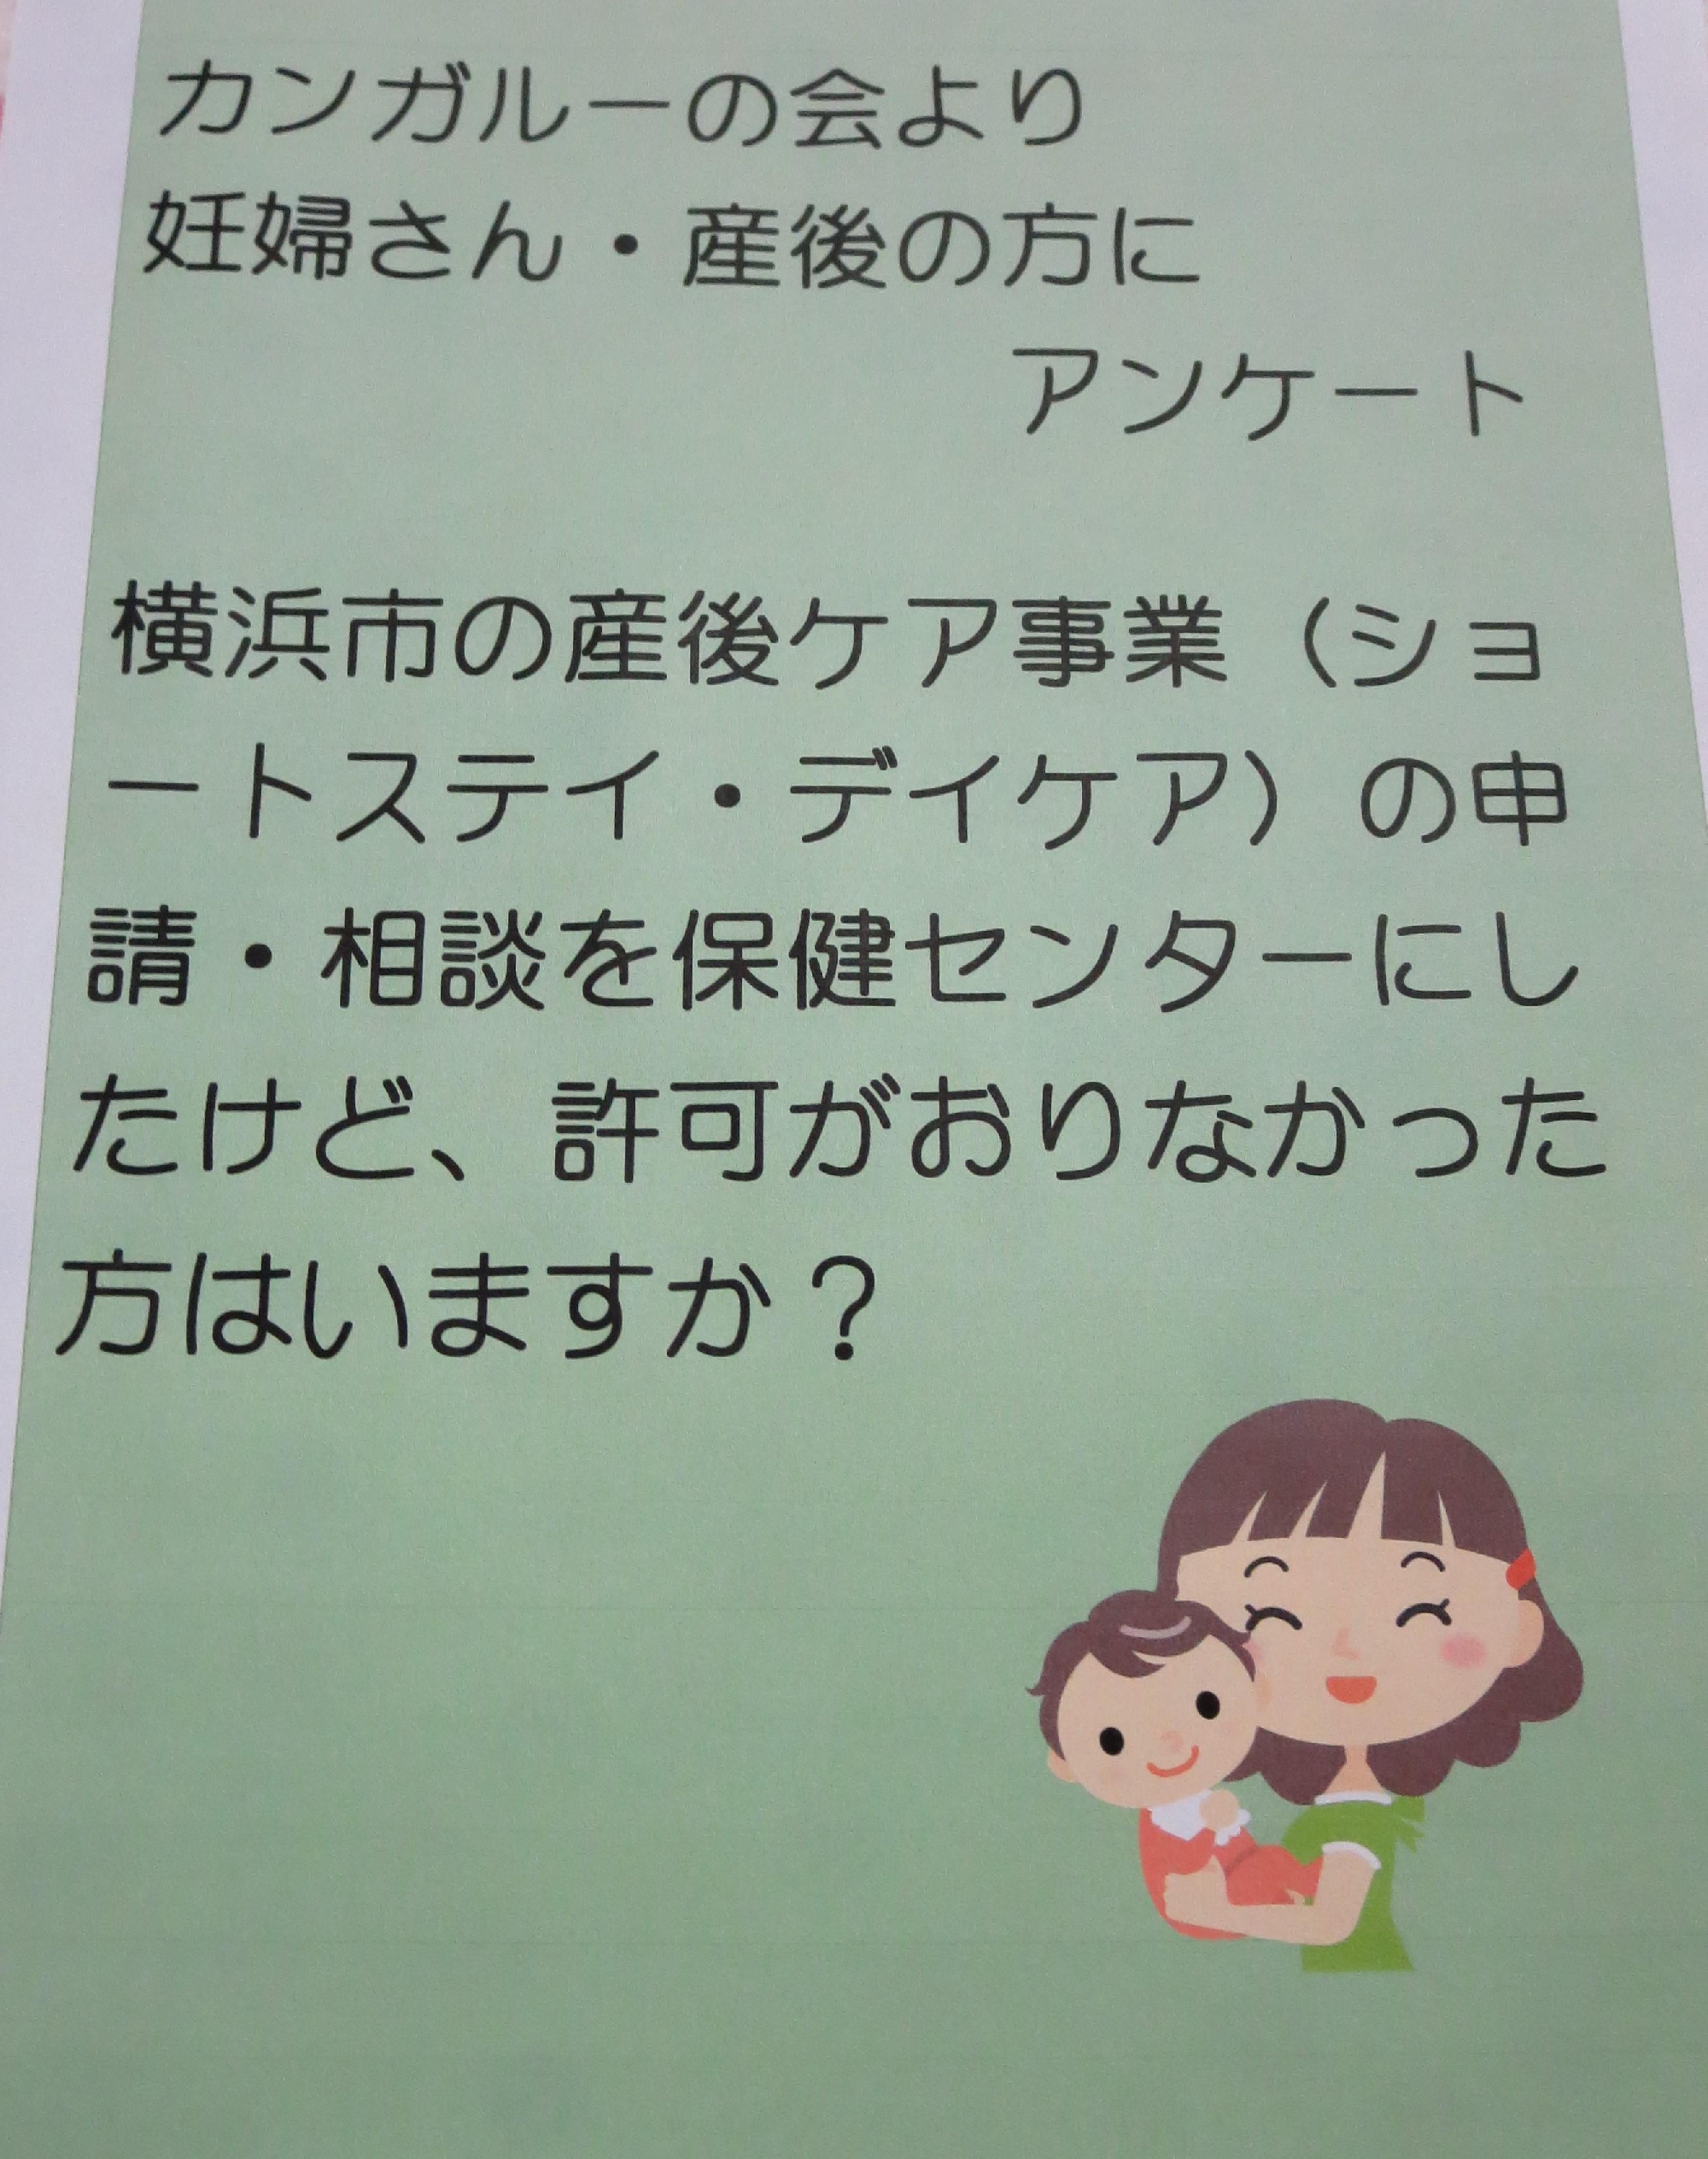 カンガルーの会より
妊婦さん・産後の方に
アンケート
横浜市の産後ケア事業（ショ
ートステイ・デイケア）の申
請・相談を保健センターにし
たけど、許可がおりなかった
方はいますか？